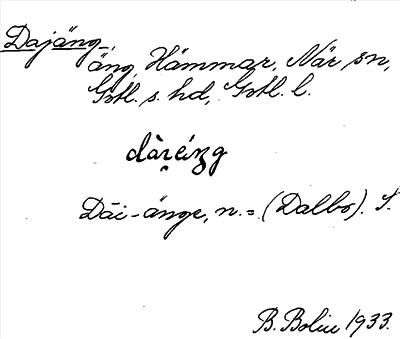 Dajäng,
äng, Hammar, När sn,
Gotl. s. hd, Gotl. l.
Dāi-änge, n. = (Dalbo). S.
B. Bolin 1933.